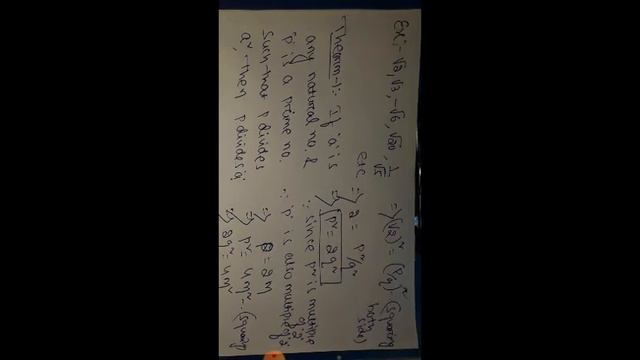 Ex:- √2, √3, -√6, √20, 1/√5
etc
Theorem-1:- If 'a' is
any natural no. &
'p' is a prime no.
such that p divides
a², then p divides a
⇒ (√2)² = (p/q)² - (squaring
both
side)
⇒ 2 = p²/q²
⇒ p² = 2q²
∵ since p² is multiple
of 2
∴ 'p' is also multiple of 2
⇒ p = 2m
⇒ p² = 4m² - (squaring
⇒ 2q² = 4m²